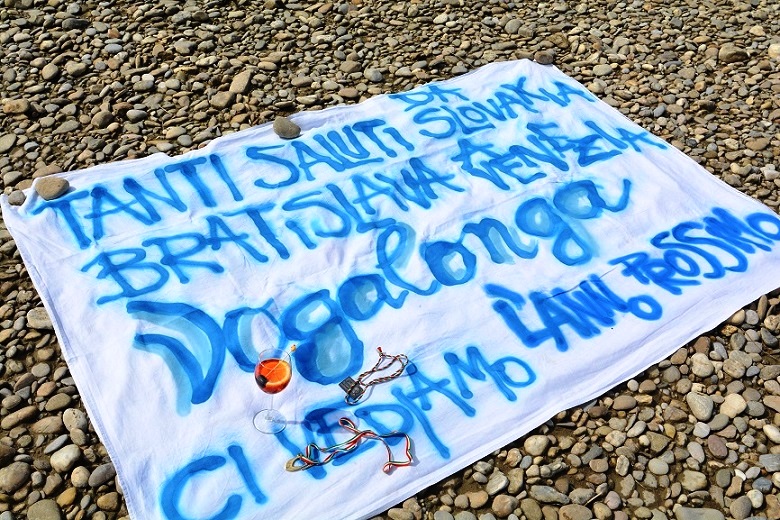 TANTI SALUTI DA SLOVAKIA
BRATISLAVA & VENEZUELA
Vogalonga
CI VEDIAMO L'ANNO PROSSIMO